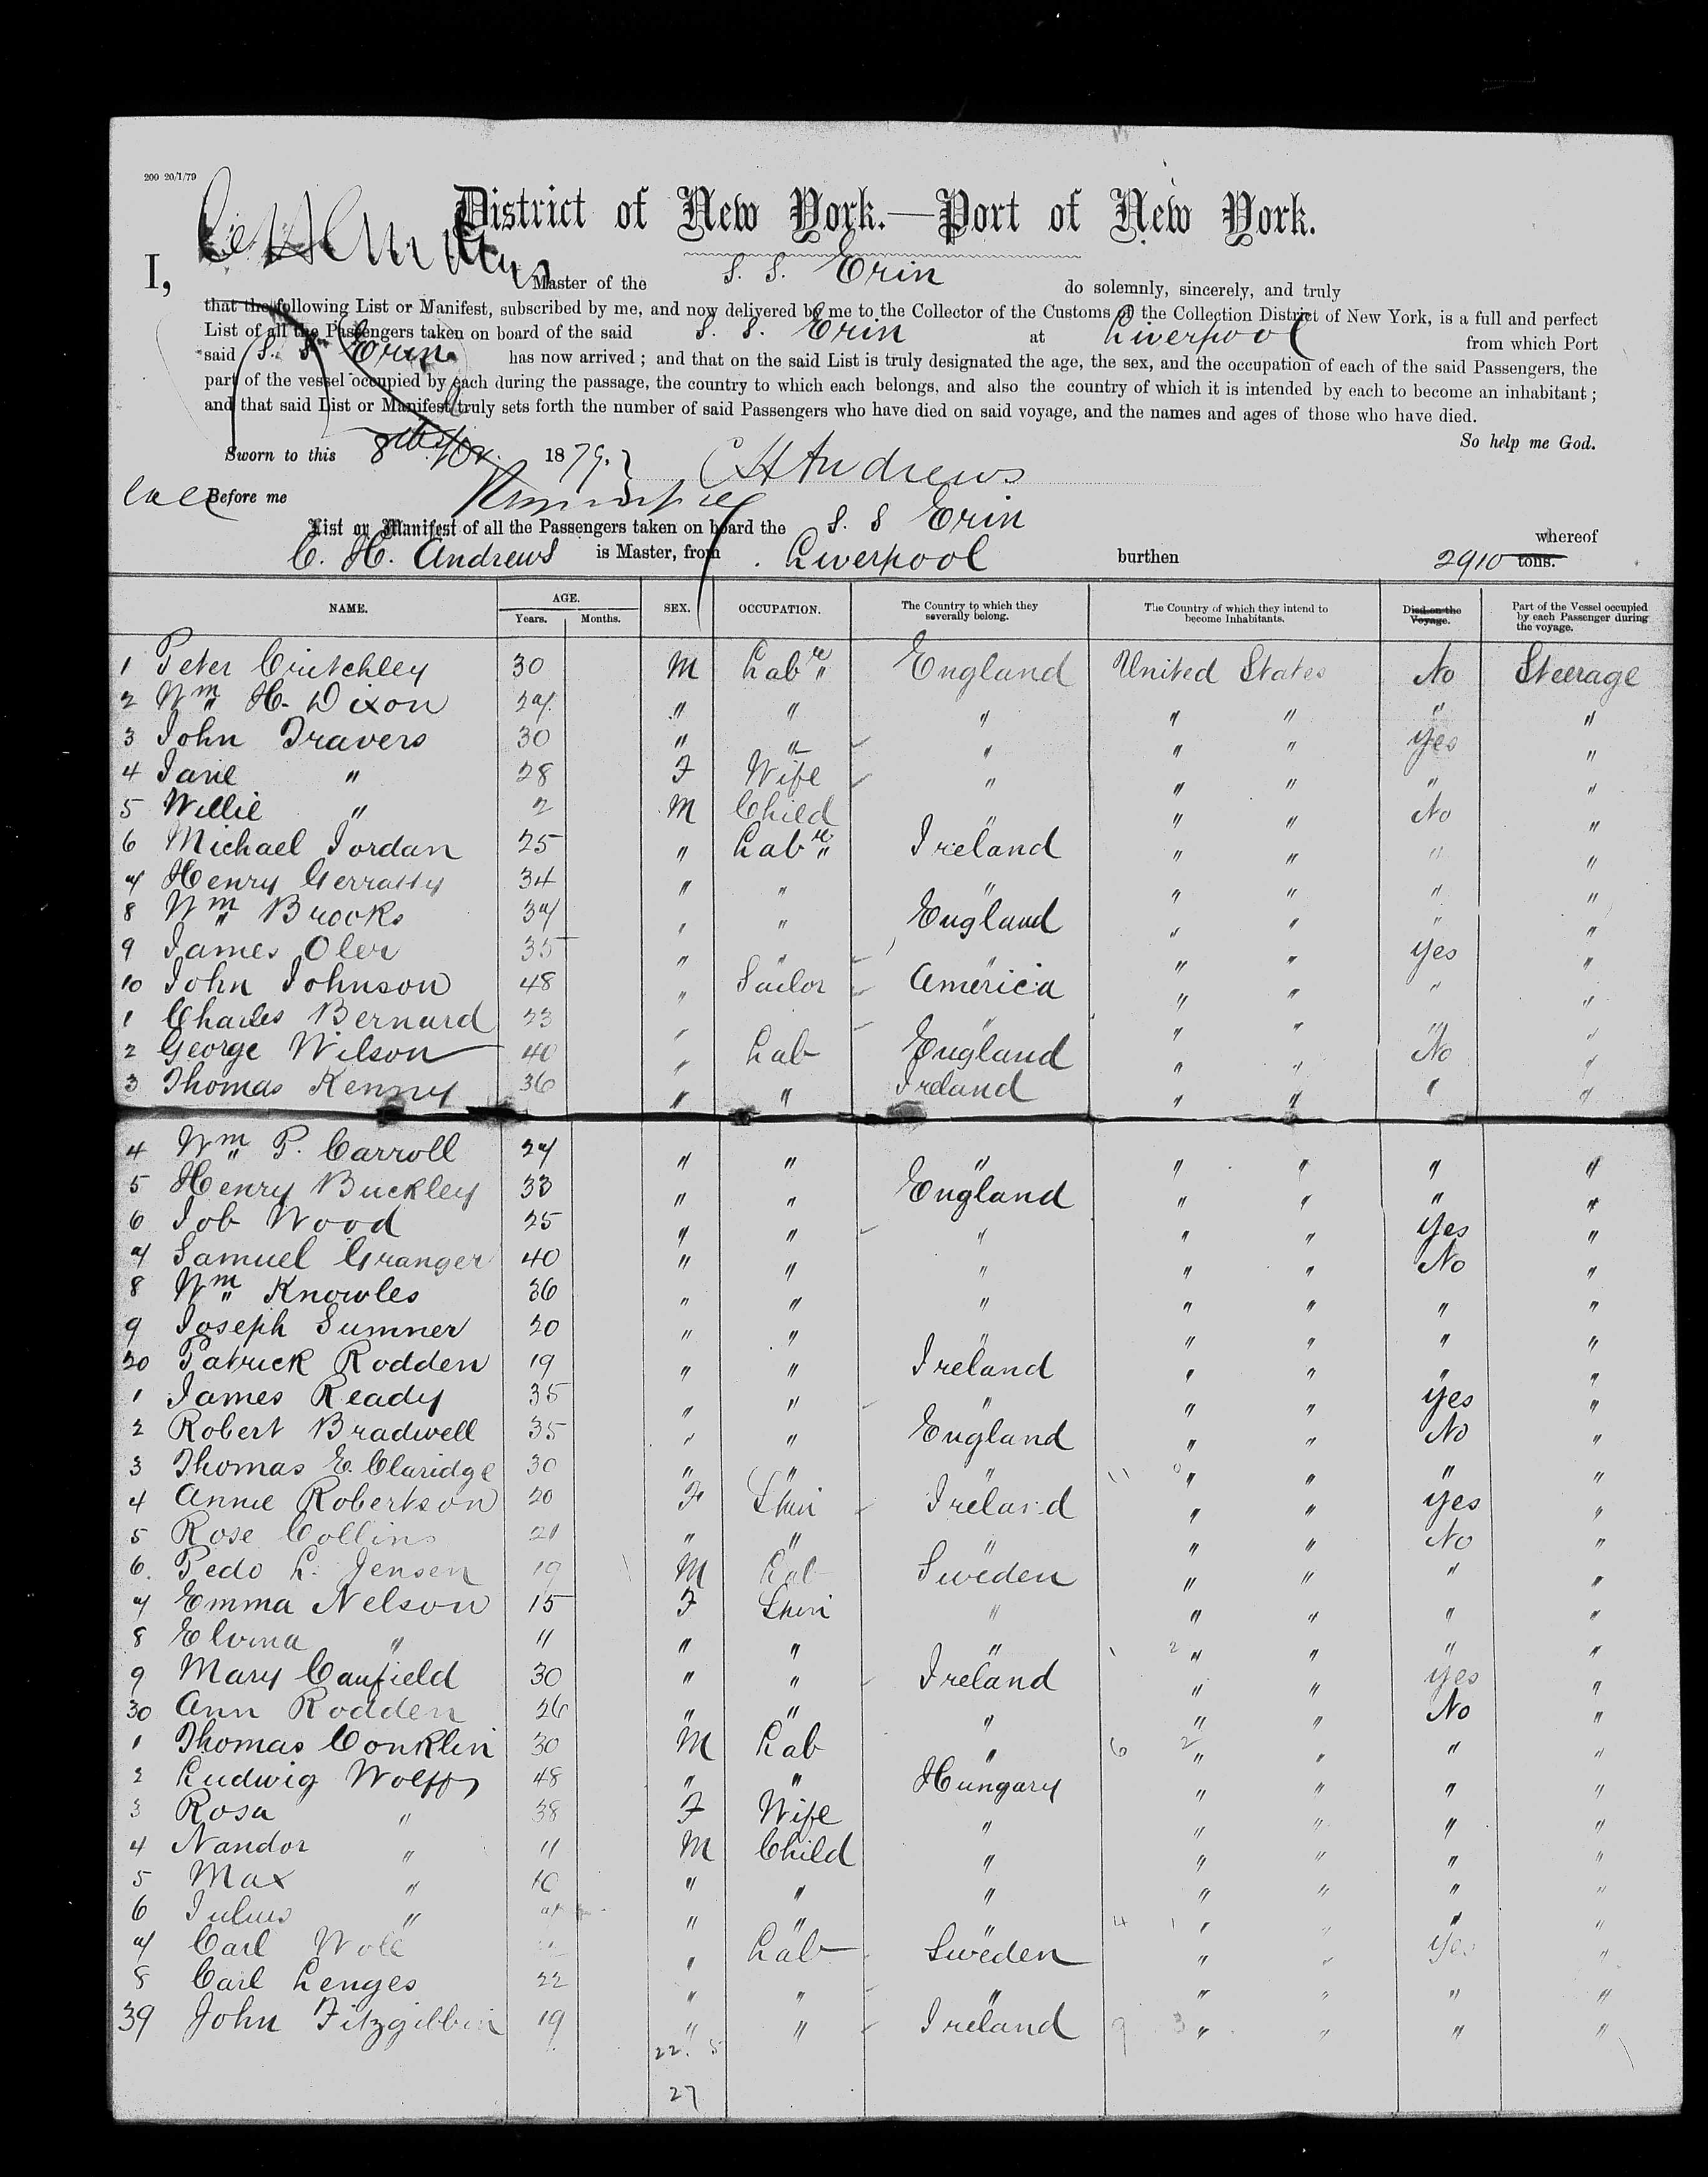 200 20/1/79
District of New York.—Port of New York.
I, Master of the S. S. Erin do solemnly, sincerely, and truly
that the following List or Manifest, subscribed by me, and now delivered by me to the Collector of the Customs of the Collection District of New York, is a full and perfect
List of all the Passengers taken on board of the said S. S. Erin at Liverpool from which Port
said S. S. Erin has now arrived; and that on the said List is truly designated the age, the sex, and the occupation of each of the said Passengers, the
part of the vessel occupied by each during the passage, the country to which each belongs, and also the country of which it is intended by each to become an inhabitant;
and that said List or Manifest truly sets forth the number of said Passengers who have died on said voyage, and the names and ages of those who have died.
So help me God.
Sworn to this 8th 1879. C H Andrews
Before me
List or Manifest of all the Passengers taken on board the S. S Erin whereof
C. H. Andrews is Master, from Liverpool burthen 2910 tons.
NAME. AGE. Years. Months. SEX. OCCUPATION. The Country to which they severally belong. The Country of which they intend to become Inhabitants. Died on the Voyage. Part of the Vessel occupied by each Passenger during the voyage.
1 Peter Crutchley 30 M Labr England United States No Steerage
2 Wm H. Dixon 27 " " " " " " "
3 John Travers 30 " " " " " yes "
4 Jane " 28 F Wife " " " " "
5 Willie " 2 M Child " " " No "
6 Michael Jordan 25 " Labr Ireland " " " "
7 Henry Gerratty 34 " " " " " " "
8 Wm Brooks 37 " " England " " " "
9 James Oler 35 " " " " " yes "
10 John Johnson 48 " Sailor America " " " "
1 Charles Bernard 23 " " " " " "
2 George Wilson 40 " Lab England " " No "
3 Thomas Kenny 36 " " Ireland " " " "
4 Wm P. Carroll 27 " " " " " " "
5 Henry Buckley 33 " " England " " " "
6 Job Wood 25 " " " " " yes "
7 Samuel Granger 40 " " " " " No "
8 Wm Knowles 36 " " " " " " "
9 Joseph Sumner 20 " " " " " " "
20 Patrick Rodden 19 " " Ireland " " " "
1 James Ready 35 " " " " " yes "
2 Robert Bradwell 35 " " England " " No "
3 Thomas E. Claridge 30 " " " " " " "
4 Annie Robertson 20 F Spin Ireland " " yes "
5 Rose Collins 21 " " " " " No "
6. Pedo L. Jensen 19 M Lab Sweden " " " "
7 Emma Nelson 15 F Spin " " " " "
8 Elvina " 11 " " " " " " "
9 Mary Canfield 30 " " Ireland " " yes "
30 Ann Rodden 26 " " " " " No "
1 Thomas Conklin 30 M Lab " 6 2 " " " "
2 Ludwig Wolff 48 " " Hungary " " " "
3 Rosa " 38 F Wife " " " " "
4 Nandor " 11 M Child " " " " "
5 Max " 10 " " " " " " "
6 Julius " " " " 4 1 " " " "
7 Carl " Lab Sweden " " yes "
8 Carl Lenges 22 " " " " " " "
39 John Fitzgibbin 19 " " Ireland 9 3 " " " "
22. 5
27